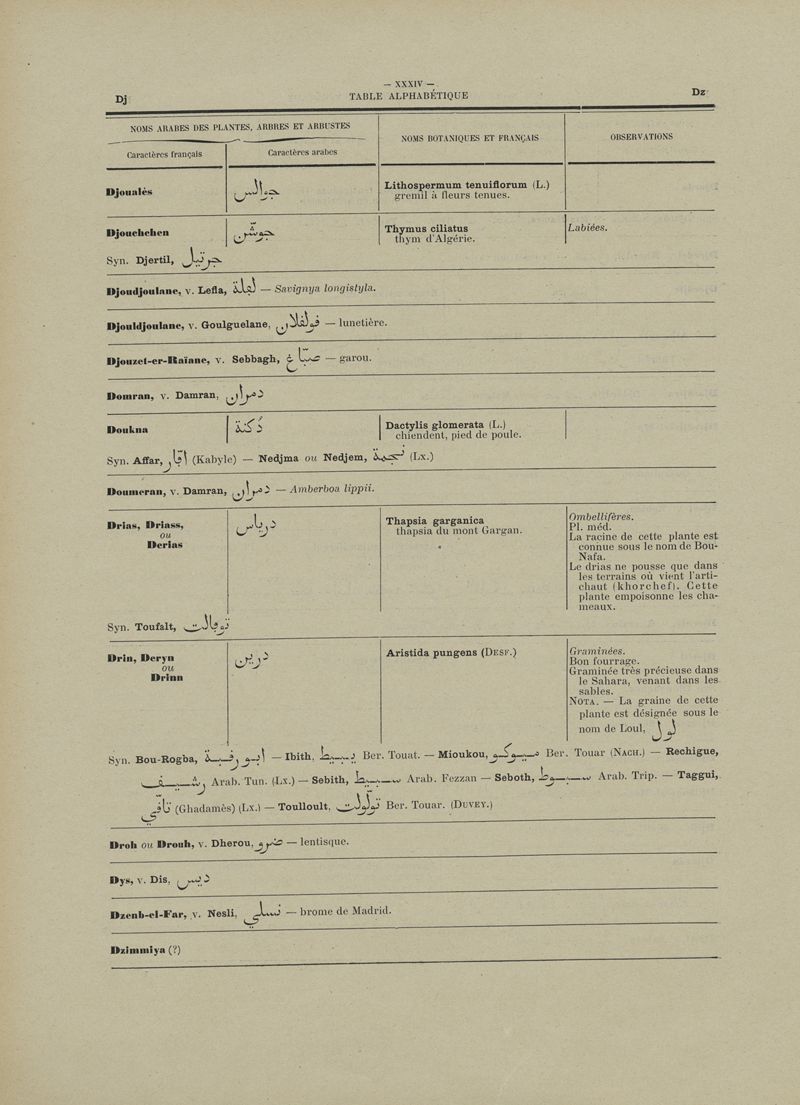 — XXXIV —
Dj
TABLE ALPHABÉTIQUE
Dz
NOMS ARABES DES PLANTES, ARBRES ET ARBUSTES
NOMS BOTANIQUES ET FRANÇAIS
OBSERVATIONS
Caractères français
Caractères arabes
Djoualès
جوالس
Lithospermum tenuiflorum (L.)
gremil à fleurs tenues.
Djouchchen
Thymus ciliatus
thym d'Algérie.
Labiées.
Syn. Djertil, جرتيل
Djoudjoulane, v. Lefla, — Savignya longistyla.
Djouldjoulane, v. Goulguelane, — lunetière.
Djouzet-er-Raïane, v. Sebbagh, — garou.
Domran, v. Damran, دمران
Doukna
دكنة
Dactylis glomerata (L.)
chiendent, pied de poule.
Syn. Affar, (Kabyle) — Nedjma ou Nedjem, نجمة (Lx.)
Doumeran, v. Damran, دمران — Amberboa lippii.
Drias, Driass,
ou
Derias
درياس
Thapsia garganica
thapsia du mont Gargan.
Ombellifères.
Pl. méd.
La racine de cette plante est
connue sous le nom de Bou-
Nafa.
Le drias ne pousse que dans
les terrains où vient l'arti-
chaut (khorchef). Cette
plante empoisonne les cha-
meaux.
Syn. Toufalt,
Drin, Deryn
ou
Drinn
درين
Aristida pungens (Desf.)
Graminées.
Bon fourrage.
Graminée très précieuse dans
le Sahara, venant dans les
sables.
Nota. — La graine de cette
plante est désignée sous le
nom de Loul,
Syn. Bou-Rogba, — Ibith, Ber. Touat. — Mioukou, Ber. Touar (Nach.) — Rechigue,
Arab. Tun. (Lx.) — Sebith, Arab. Fezzan — Seboth, Arab. Trip. — Taggui,
(Ghadamès) (Lx.) — Toulloult, Ber. Touar. (Duvey.)
Droh ou Drouh, v. Dherou, ضرو — lentisque.
Dys, v. Dis, ديس
Dzenb-el-Far, v. Nesli, نسلي — brome de Madrid.
Dzimmiya (?)